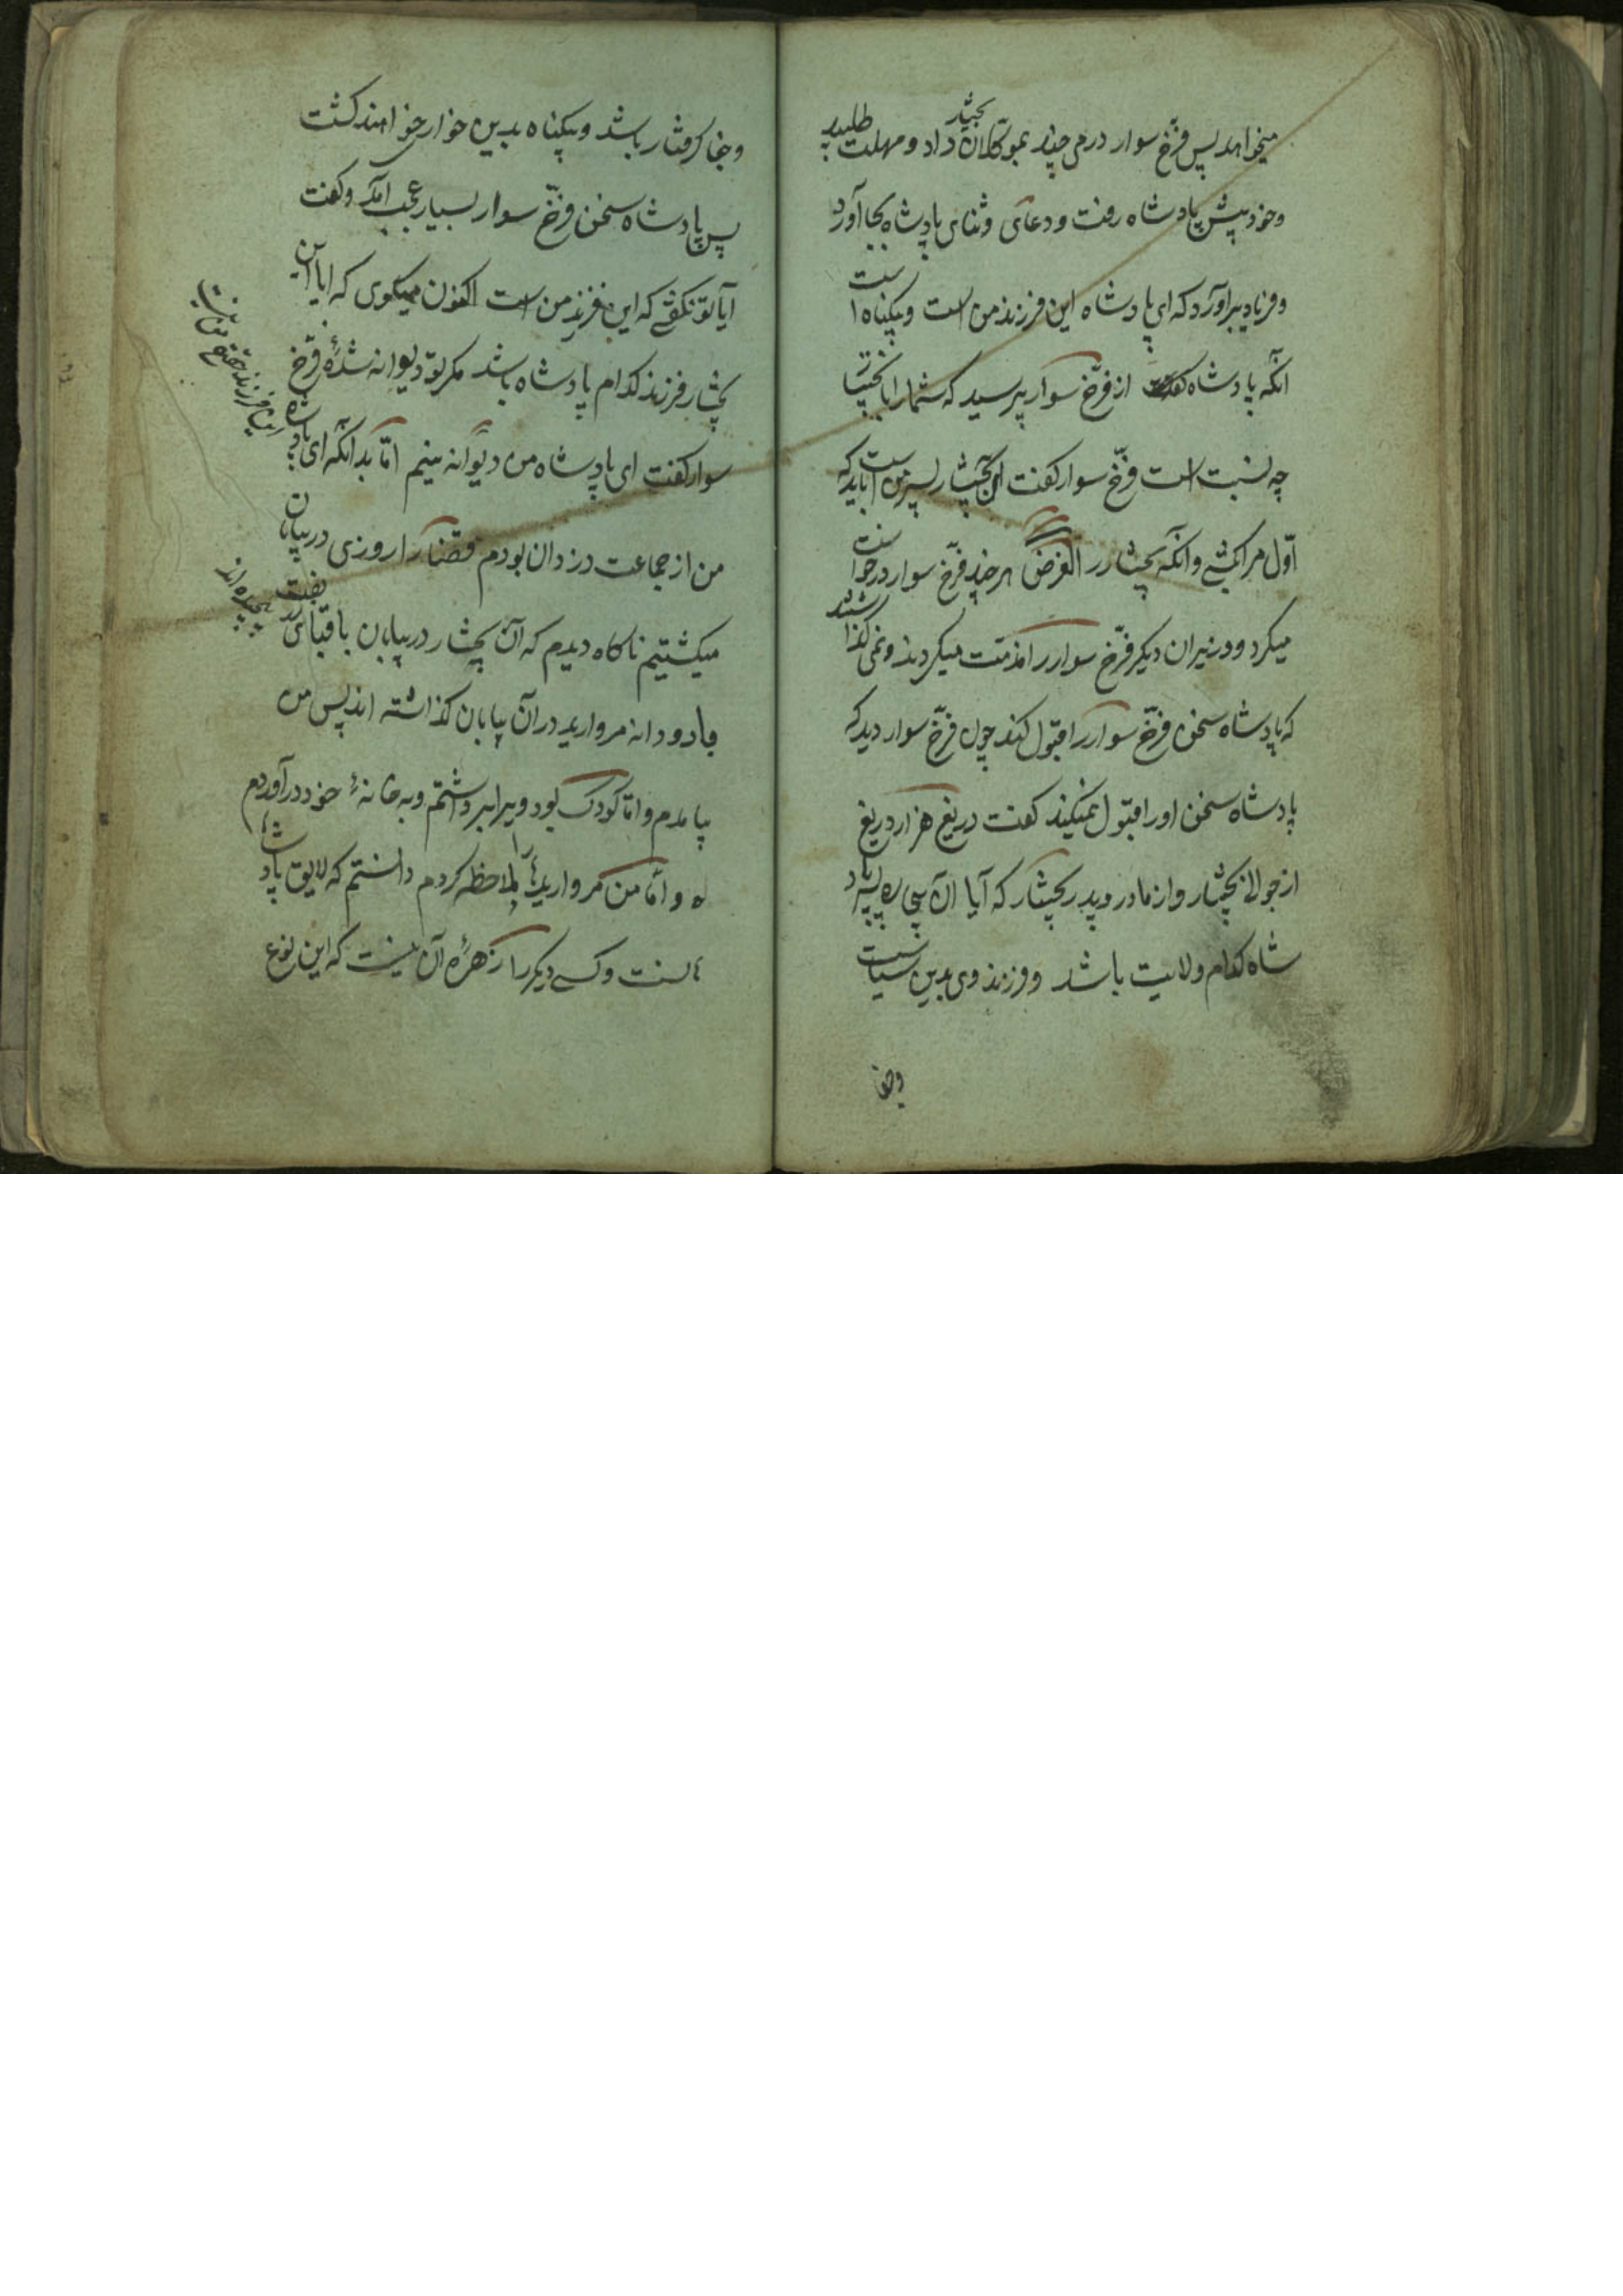 میخواهد پس فرّخ سوار درمی چند بموکّلان بختیار داد و مهلت طلبید
وخود پیش پادشاه رفت و دعای وثنای پادشاه بجا آورد
وفریاد براورد که ای پادشاه این فرزند من است وبیکناه است
انکه پادشاه از فرّخ سوار پرسید که شمارا با بختیار
چه نسبت است فرّخ سوار کفت این بختیار پسر من است باید که
اوّل مرا کشی وانکه بختیار را الغرض هر چند فرّخ سوار درخواست
میکرد ووزیران دیکر فرّخ سوار را مذمّت میکردند ونمی کذاشتند
که پادشاه سخن فرّخ سوار را قبول کند چون فرّخ سوار دید که
پادشاه سخن اورا قبول نمیکند کفت دریغ هزار دریغ
از جوانی بختیار واز مادر وپدر بختیار که آیا آن بیچاره پاد
شاه کدام ولایت باشد وفرزند وی بدین سیاست
وجفا
وجفا کرفتار باشد وبیکناه بدین خواری خواهند کشت
پس پادشاه سخن فرّخ سوار بسیار عجب آمد وکفت
آیا تو نکفتی که این فرزند من است اکنون میکوی که ایا این
بختیار فرزند کدام پادشاه باشد مکر تو دیوانه شدهٔ فرّخ
سوار کفت ای پادشاه من دیوانه نیم امّا بدانکه ای پادشاه
این فرزند حقیقی من نیست
من از جماعت دزدان بودم قضا را روزی در بیابان
میکشتیم ناکاه دیدم که آن بختیار در بیابان با قبای زربفت
پیچیده اند
با دو دانه مروارید در آن بیابان کذاشته اند پس من
بیامدم وامّا کودک بود ویرا برداشتم وبه خانهٔ خود در آوردم
وامّا من مروارید را ملاحظه کردم دانستم که لایق پادشاهانست
وکسی دیکر را زهرهٔ آن نیست که این نوع